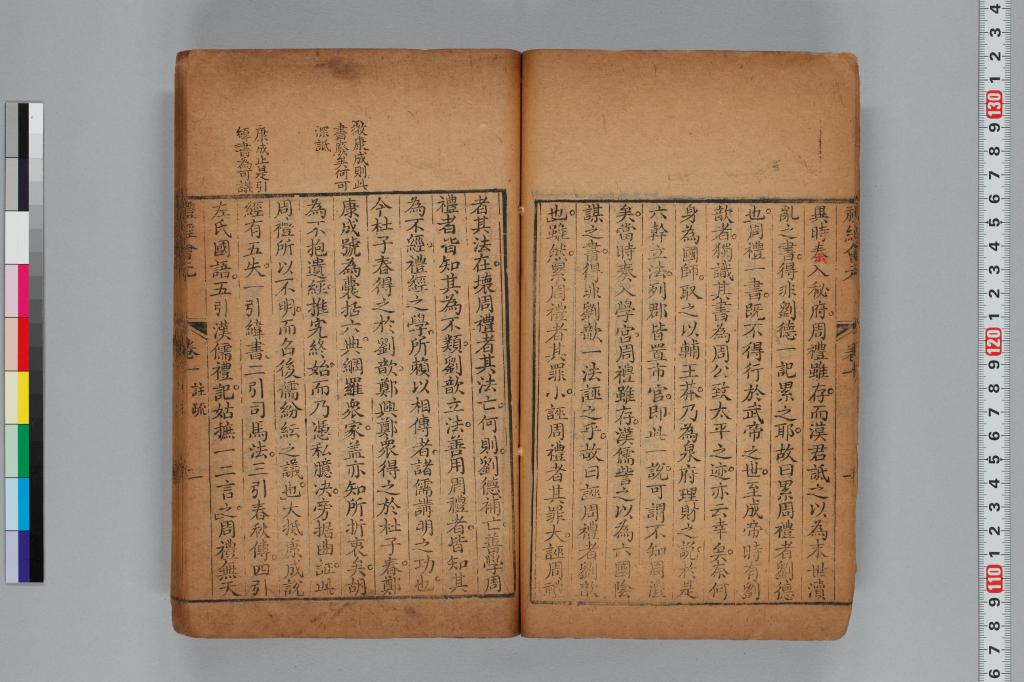 異時奏入秘府周禮雖存而漢君詆之以為末世瀆
亂之書得非劉德一記累之耶故曰累周禮者劉德
也周禮一書既不得行於武帝之世至成帝時有劉
歆者獨識其書為周公致太平之迹亦云幸矣奈何
身為國師取之以輔王莽乃為泉府理財之說於是
六幹立法列郡皆置市官即此一說可謂不知周禮
矣當時奏入學官周禮雖存漢儒訾之以為六國陰
謀之書得非劉歆一法誣之乎故曰誣周禮者劉歆
也雖然累周禮者其罪小誣周禮者其罪大誣周禮
者其法在壞周禮者其法亡何則劉德補亡善學周
禮者皆知其為不類劉歆立法善用周禮者皆知其
為不經禮經之學所賴以相傳者諸儒講明之功也
今杜子春得之於劉歆鄭興鄭衆得之於杜子春鄭
康成號為囊括六典網羅衆家蓋亦知所折衷矣胡
為不抱遺經推究終始而乃憑私臆决旁据曲証此
周禮所以不明而名後儒紛紜之議也大抵康成說
經有五失一引緯書二引司馬法三引春秋傳四引
左氏國語五引漢儒禮記姑摭一二言之周禮無天
康成則此
書廢矣何可
深詆
康成止是引
緯書為可議
禮經會元
卷一
註疏
一